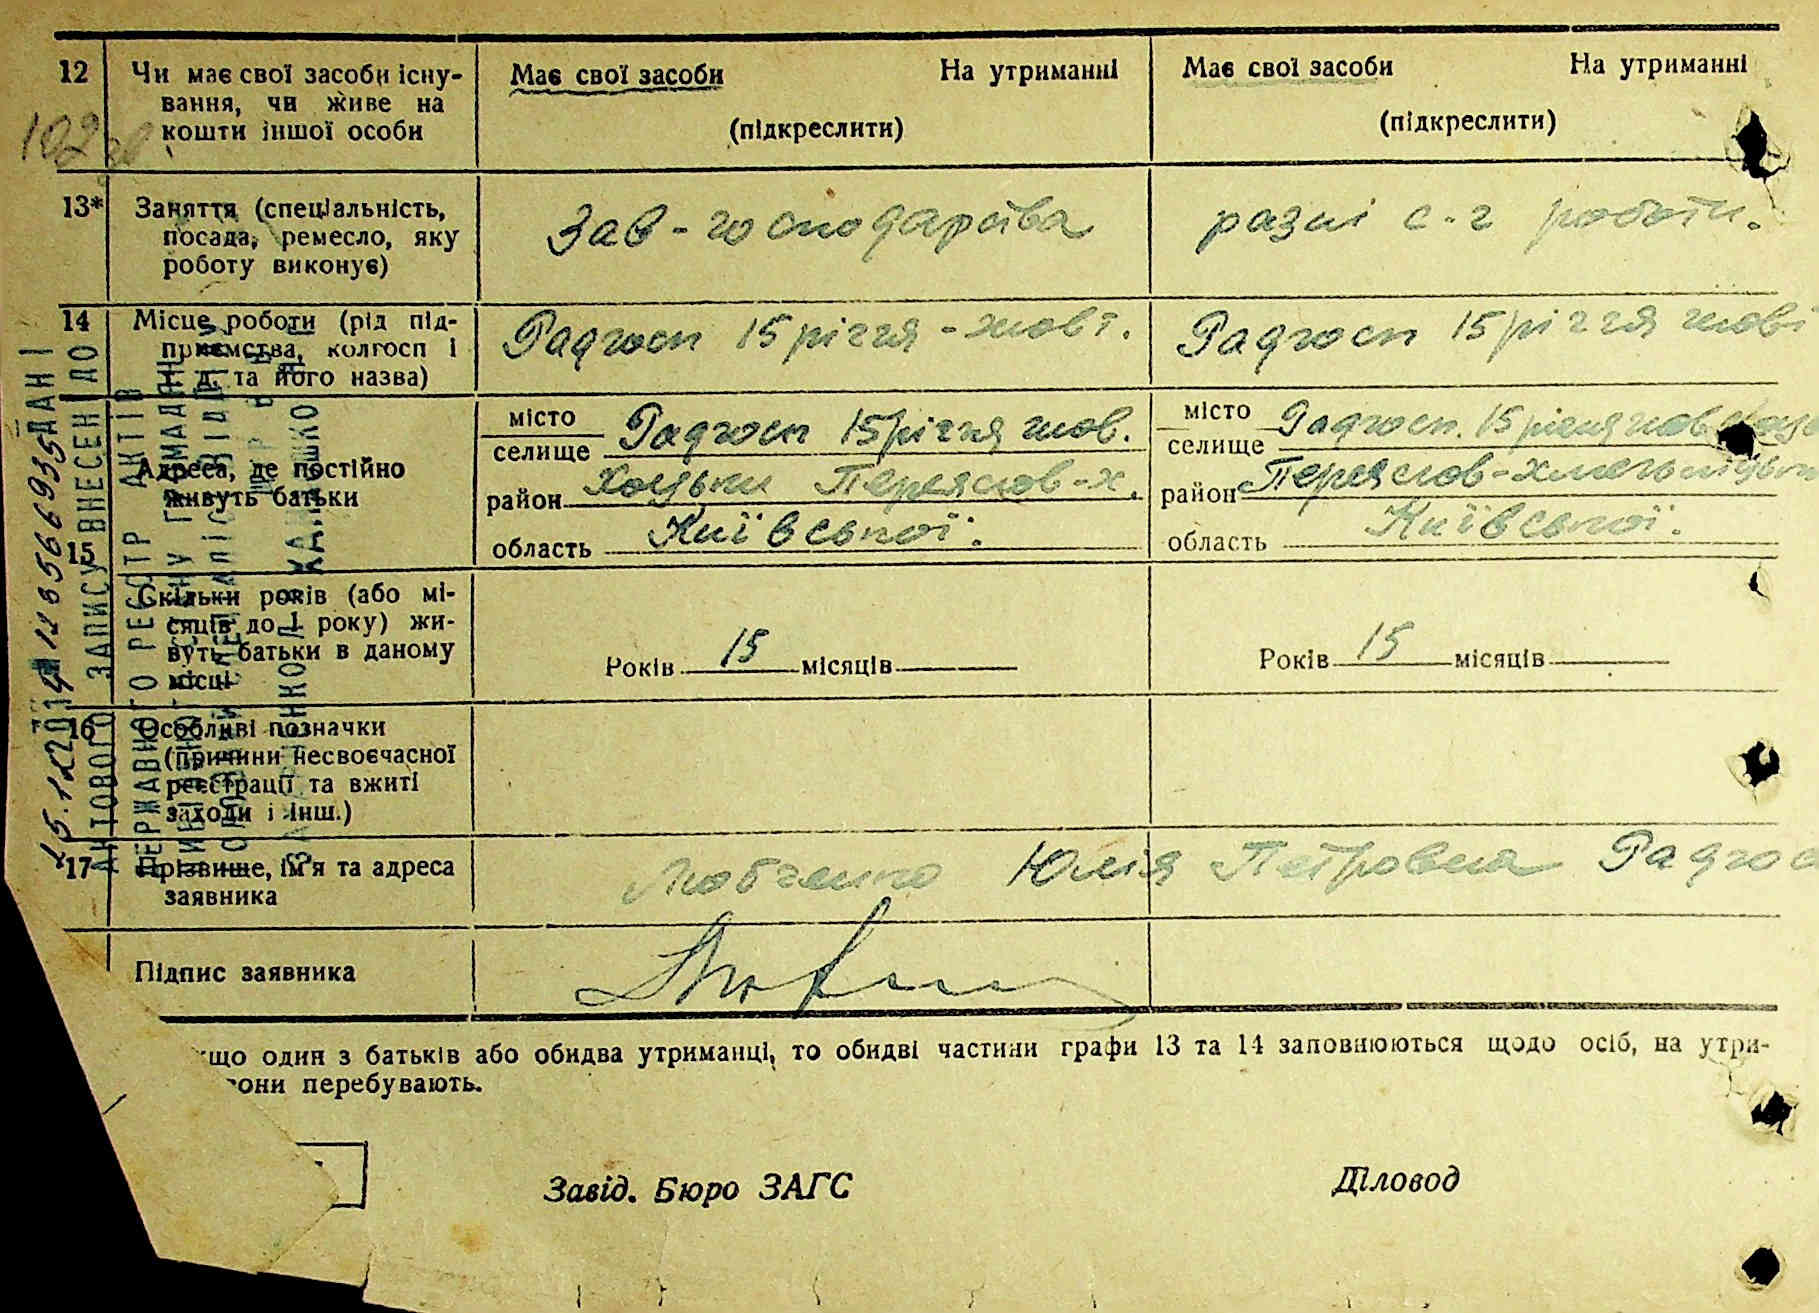 12 Чи має свої засоби існу-
вання, чи живе на
кошти іншої особи
Має свої засоби На утриманні
(підкреслити)
Має свої засоби На утриманні
(підкреслити)
102
13* Заняття (спеціальність,
посада, ремесло, яку
роботу виконує)
Зав-господарства
разні с-г роботи.
14 Місце роботи (рід під-
приємства, колгосп і
т. д. та його назва)
Радгосп 15 річчя-жовт.
Радгосп 15 річчя жовт
15 Адреса, де постійно
живуть батьки
місто
селище Радгосп 15річчя жов.
район Хоцьки Переяслов-х.
область Київської.
місто
селище Радгосп. 15 річчя жов
район Переяслов-хмельницьк
область Київської.
Скільки років (або мі-
сяців до 1 року) жи-
вуть батьки в даному
місці
Років 15 місяців
Років 15 місяців
16 Особливі позначки
(причини несвоєчасної
реєстрації та вжиті
заходи і інш.)
17 Прізвище, ім'я та адреса
заявника
Любченко Юлія Петровна Радгос
Підпис заявника
кщо один з батьків або обидва утриманці, то обидві частини графи 13 та 14 заповнюються щодо осіб, на утри-
вони перебувають.
Завід. Бюро ЗАГС Діловод
ДАНІ
АКТОВОГО ЗАПИСУ ВНЕСЕНІ ДО
ДЕРЖАВНОГО РЕЄСТР АКТІВ
ЦИВІЛЬНОГО СТАНУ ГРОМАДЯН